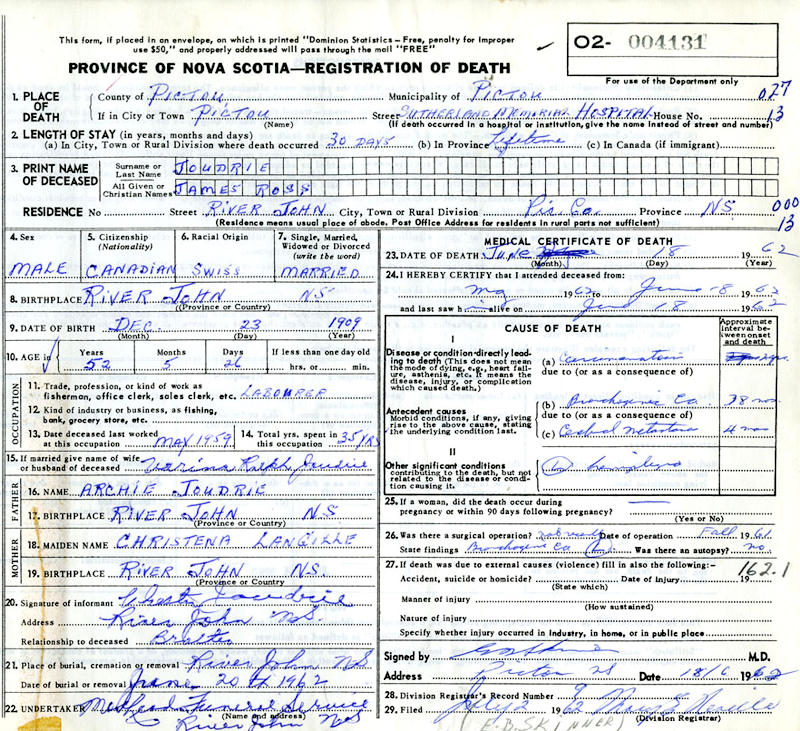 This form, if placed in an envelope, on which is printed "Dominion Statistics – Free, penalty for improper
use $50," and properly addressed will pass through the mail "FREE"
O2- 004131
PROVINCE OF NOVA SCOTIA—REGISTRATION OF DEATH
For use of the Department only
1. PLACE OF DEATH
County of PICTOU Municipality of PICTOU 027
If in City or Town PICTOU Street SUTHERLAND MEMORIAL HOSPITAL House No. 13
(Name) (If death occurred in a hospital or institution, give the name instead of street and number)
2. LENGTH OF STAY (in years, months and days)
(a) In City, Town or Rural Division where death occurred 30 DAYS (b) In Province Lifetime (c) In Canada (if immigrant)
3. PRINT NAME OF DECEASED
Surname or Last Name JOUDRIE
All Given or Christian Names JAMES ROSS
RESIDENCE No Street RIVER JOHN City, Town or Rural Division Pic Co. Province NS 000
(Residence means usual place of abode. Post Office Address for residents in rural parts not sufficient) 13
4. Sex
MALE
5. Citizenship (Nationality)
CANADIAN
6. Racial Origin
SWISS
7. Single, Married, Widowed or Divorced (write the word)
MARRIED
8. BIRTHPLACE RIVER JOHN NS
(Province or Country)
9. DATE OF BIRTH DEC. 23 1909
(Month) (Day) (Year)
10. AGE in Years Months Days If less than one day old
52 5 26 hrs. or min.
OCCUPATION
11. Trade, profession, or kind of work as
fisherman, office clerk, sales clerk, etc. LABOURER
12. Kind of industry or business, as fishing,
bank, grocery store, etc.
13. Date deceased last worked at this occupation MAY 1959
14. Total yrs. spent in this occupation 35 YRS
15. If married give name of wife
or husband of deceased Ralph Joudrie
FATHER
16. NAME ARCHIE JOUDRIE
17. BIRTHPLACE RIVER JOHN NS
(Province or Country)
MOTHER
18. MAIDEN NAME CHRISTENA LANGILLE
19. BIRTHPLACE RIVER JOHN NS.
(Province or Country)
20. Signature of informant Chester Joudrie
Address River John NS.
Relationship to deceased Brother
21. Place of burial, cremation or removal River John NS
Date of burial or removal June 20th 1962
22. UNDERTAKER Funeral Service
(Name and address)
River John NS
MEDICAL CERTIFICATE OF DEATH
23. DATE OF DEATH June 18 1962
(Month) (Day) (Year)
24. I HEREBY CERTIFY that I attended deceased from:
1962 to June 18 1962
and last saw him alive on June 18 1962
CAUSE OF DEATH
Approximate interval between onset and death
I
Disease or condition directly leading to death (This does not mean the mode of dying, e.g., heart failure, asthenia, etc. It means the disease, injury, or complication which caused death.)
(a) Carcinomatosis
due to (or as a consequence of)
Antecedent causes
Morbid conditions, if any, giving rise to the above cause, stating the underlying condition last.
(b) Bronchogenic Ca. mos
due to (or as a consequence of)
(c) Cerebral Metastases 4 mos
II
Other significant conditions
contributing to the death, but not related to the disease or condition causing it.
hemiplegia
25. If a woman, did the death occur during
pregnancy or within 90 days following pregnancy?
(Yes or No)
26. Was there a surgical operation? Date of operation Fall 1961
State findings Bronchogenic Ca Was there an autopsy? no
27. If death was due to external causes (violence) fill in also the following:– 162.1
Accident, suicide or homicide? Date of injury 19
(State which)
Manner of injury
(How sustained)
Nature of injury
Specify whether injury occurred in industry, in home, or in public place
Signed by M.D.
Address Pictou NS Date 18/6 1962
28. Division Registrar's Record Number 9
29. Filed July 2 1962
(Division Registrar)
(E.B. SKINNER)